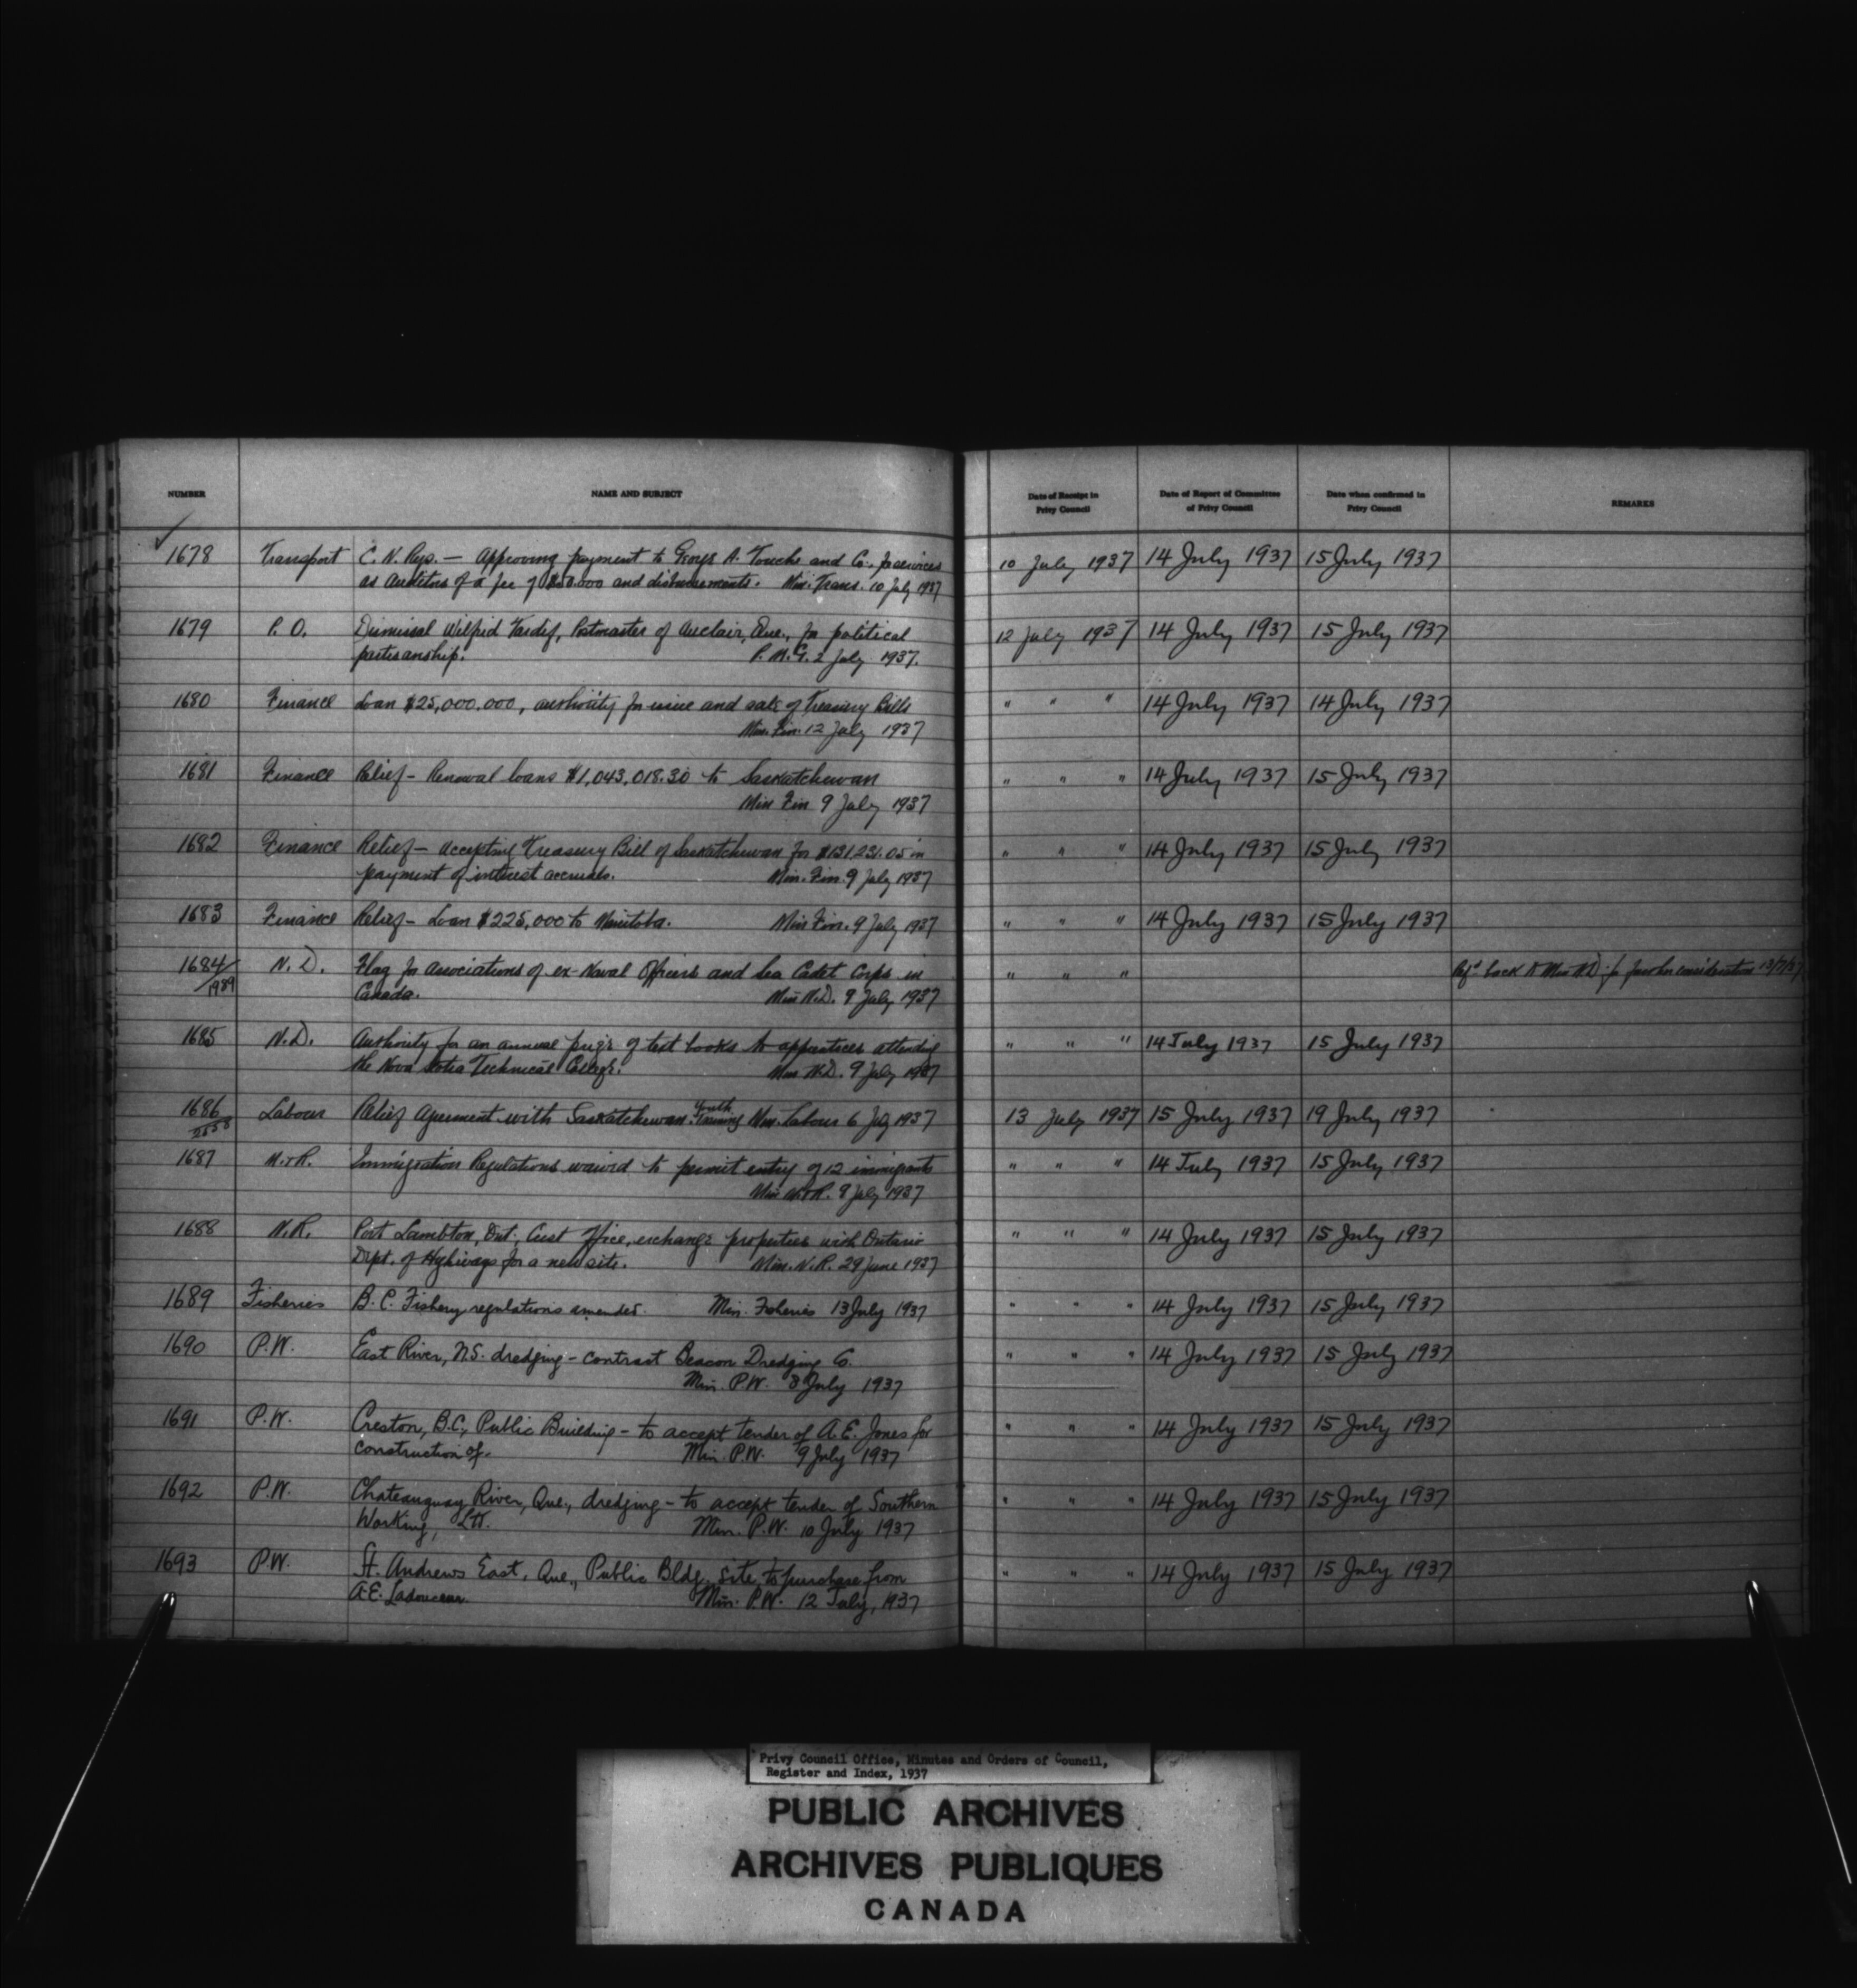 NUMBER NAME AND SUBJECT Date of Receipt in Privy Council Date of Report of Committee of Privy Council Date when confirmed in Privy Council REMARKS
1678 Transport C. N. Rys. — Approving payment to George A. Touche and Co., for services 10 July 1937 14 July 1937 15 July 1937
as Auditors of a fee of $50.000 and disbursements. Min. Trans. 10 July 1937
1679 P. O. Dismissal Wilfrid Tardif, Postmaster of Auclair, Que., for political 12 July 1937 14 July 1937 15 July 1937
partisanship. P.M.G. 2 July 1937.
1680 Finance Loan $25,000.000, authority for issue and sale of Treasury Bills " " " 14 July 1937 14 July 1937
Min. Fin. 12 July 1937
1681 Finance Relief – Renewal loans $1,043,018.30 to Saskatchewan " " " 14 July 1937 15 July 1937
Min Fin 9 July 1937
1682 Finance Relief – accepting Treasury Bill of Saskatchewan for $131231.05 in " " " 14 July 1937 15 July 1937
payment of interest accruals. Min. Fin. 9 July 1937
1683 Finance Relief – Loan $225,000 to Manitoba. Min Fin. 9 July 1937 " " " 14 July 1937 15 July 1937
1684/ N. D. Flag for Associations of ex-Naval Officers and Sea Cadet Corps in " " " Ref'd back to Min N.D. for further consideration 13/7/37
1989 Canada. Min N.D. 9 July 1937
1685 N.D. Authority for an annual prize of text books to apprentices attending " " " 14 July 1937 15 July 1937
the Nova Scotia Technical College. Min N.D. 9 July 1937
1686 Labour Relief Agreement with Saskatchewan. Youth Training Min. Labour 6 July 1937 13 July 1937 15 July 1937 19 July 1937
1687 M.&R. Immigration Regulations waived to permit entry of 12 immigrants " " " 14 July 1937 15 July 1937
Min M.&R. 9 July 1937
1688 N.R. Port Lambton, Ont., Cust Office, exchange properties with Ontario " " " 14 July 1937 15 July 1937
Dept. of Highways for a new site. Min. N.R. 29 June 1937
1689 Fisheries B.C. Fishery regulations amended. Min. Fisheries 13 July 1937 " " " 14 July 1937 15 July 1937
1690 P.W. East River, N.S. dredging – contract Beacon Dredging Co. " " " 14 July 1937 15 July 1937
Min. P.W. 8 July 1937
1691 P.W. Creston, B.C., Public Building – to accept tender of A.E. Jones for " " " 14 July 1937 15 July 1937
construction of. Min. P.W. 9 July 1937
1692 P.W. Chateauguay River, Que., dredging – to accept tender of Southern " " " 14 July 1937 15 July 1937
Working, Ltd. Min. P.W. 10 July 1937
1693 P.W. St. Andrews East, Que., Public Bldg. site, to purchase from " " " 14 July 1937 15 July 1937
A.E. Ladouceur. Min. P.W. 12 July, 1937
Privy Council Office, Minutes and Orders of Council,
Register and Index, 1937
PUBLIC ARCHIVES
ARCHIVES PUBLIQUES
CANADA